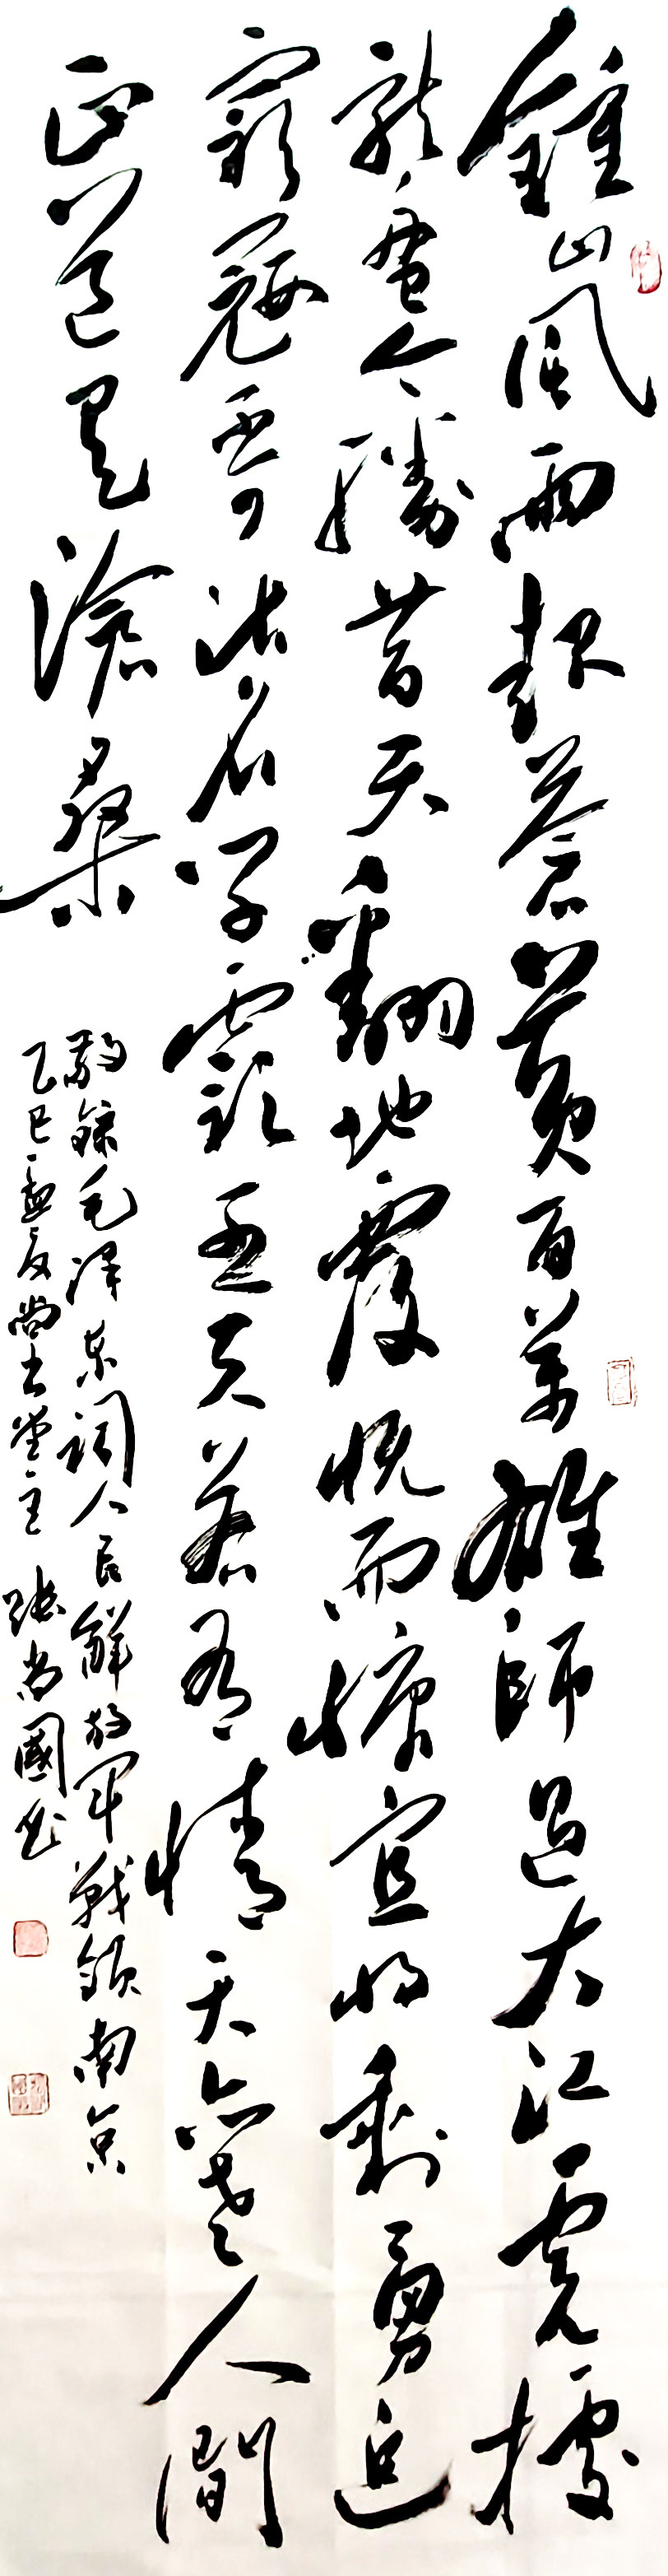 鍾山風雨起蒼黄百萬雄師過大江虎據
龍盤今勝昔天翻地覆慨而慷宜將剩勇追
窮寇不可沽名學霸王天若有情天亦老人間
正道是滄桑
敬錄毛澤東詞人民解放軍戰領南京
乙巳孟夏尚堂主張尚國书